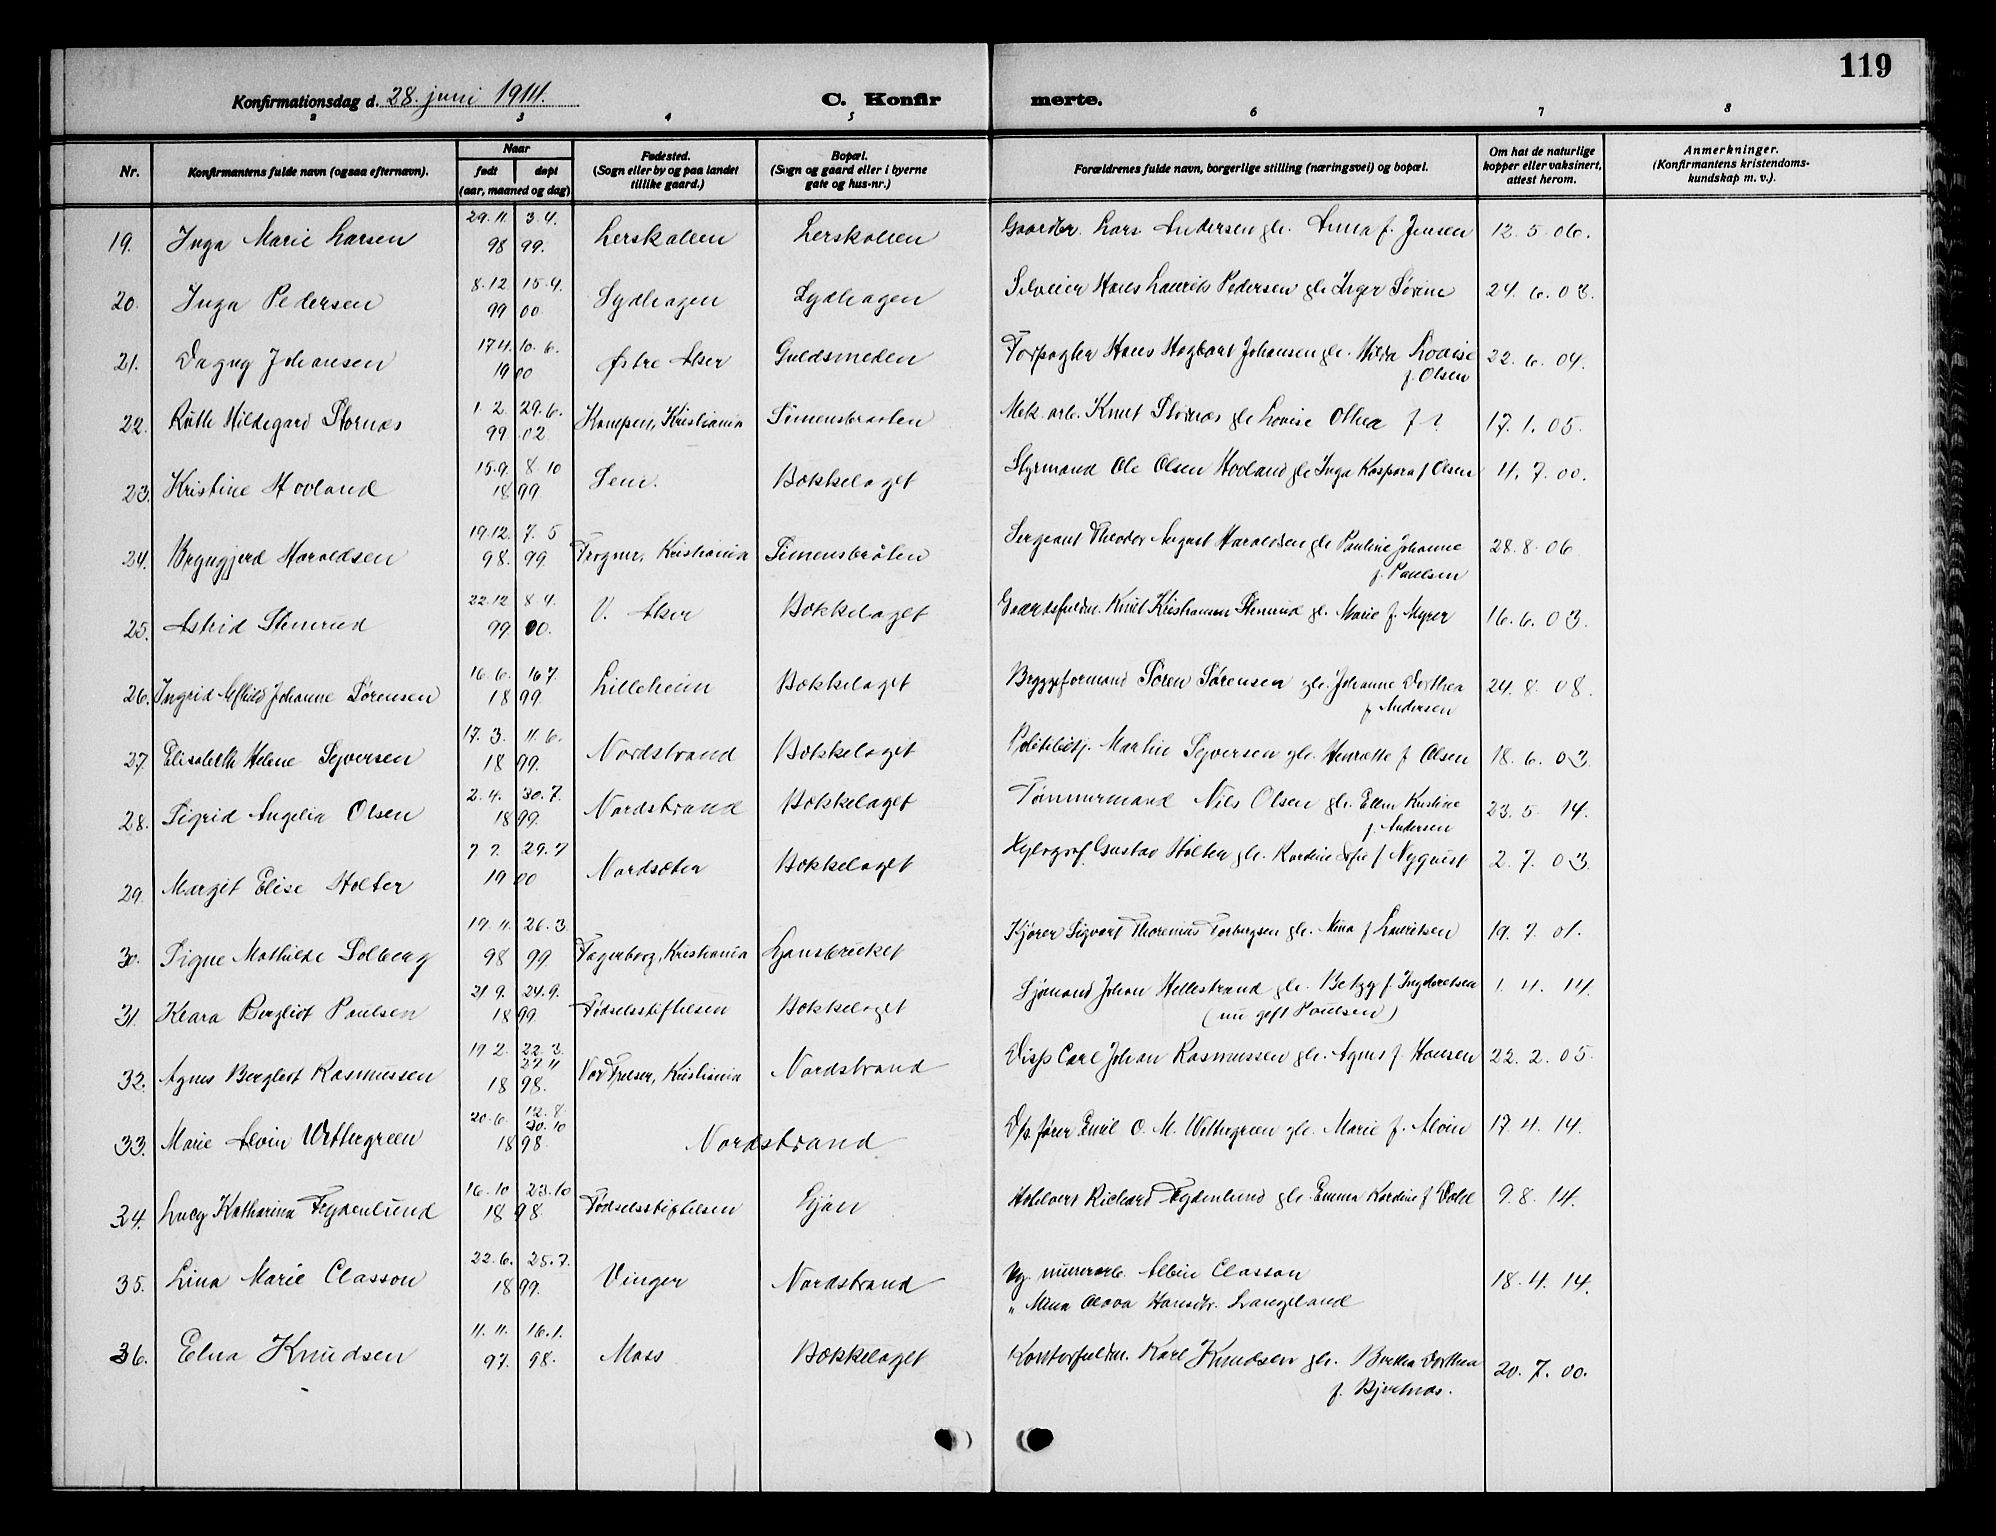 119
Konfirmationsdag d. 28. juni 1914.
C. Konfir merte.
2 3 4 5 6 7 8
Nr. Konfirmantens fulde navn (ogsaa efternavn). Naar født døpt (aar, maaned og dag) Fødested. (Sogn eller by og paa landet tillike gaard.) Bopæl. (Sogn og gaard eller i byerne gate og hus-nr.) Forældrenes fulde navn, borgerlige stilling (næringsvei) og bopæl. Om hat de naturlige kopper eller vaksinert, attest herom. Anmerkninger. (Konfirmantens kristendoms-kundskap m. v.).
19. Inga Marie Larsen 29.11. 98 3.4. 99. Lerskallen Lerskallen Gaardbr. Lars Andersen gh. Anna f. Jensen 12.5.06.
20. Inga Pedersen 8.12. 99 15.4. 00 Sydhagen Sydhagen Hans Laurits Pedersen gh. Inger Sørine 24.6.03.
21. Dagny Johansen 17.4. 10.6. 1900 Østre Aker Guldsmeden Forpagter Hans Hagbart Johansen gh. Hilda Lovise f. Olsen 22.6.04.
22. Ruth Hildegard Stornæs 1.2. 99 29.6. 02. Kampen, Kristiania Simensbraaten Mek. arb. Knut Stornæs gh. Lovise Othea f ? 17.1.05.
23. Kristine Hovland 15.9. 8.10 1899 Sem. Bækkelaget Styrmand Ole Olsen Hovland gh. Inga Kaspara f Olsen 11.7.00.
24. Bryngjerd Haraldsen 19.12. 98. 7.5 99. Frogner, Kristiania Simensbråten Sergeant Theodor August Haraldsen gh. Pauline Johanne f. Paulsen 28.8.06
25. Astrid Stenerud 22.12 99. 8.4. 00. V. Aker Bækkelaget Knut Kristiansen Stenrud gh. Marie f. Myrer 16.6.03.
26. Ingrid Johanne Sørensen 16.6. 16.7. 1899. Lilleheim Bækkelaget Bryggeformand Søren Sørensen gh. Johanne Dorthea f. Andersen 24.8.08.
27. Elisabeth Helene Syversen 17.3. 11.6. 1899. Nordstrand Bækkelaget Politibetj. Martin Syversen gh. Henriette f Olsen 18.6.03.
28. Sigrid Angelia Olsen 2.4. 30.7. 1899. Nordstrand Bækkelaget Tømmermand Nils Olsen gh. Ellen Kristine f. Andersen 23.5.14.
29. Margit Elise Holter 7.7. 29.7 1900 Nordsæter Bækkelaget Xylograf Gustav Holter gh. Kardine Sofie f Nyquist 2.7.03.
30. Signe Mathilde Solberg 19.11. 98 26.3. 99. Fagerborg, Kristiania Ljansbruket Kjører Sigvart Thorenius Torbergsen gh. Mina f Lauritsen 19.7.01.
31. Klara Bergliot Paulsen 21.9. 24.9. 1899 Fødselsstiftelsen Bækkelaget Sjømand Johan Hellestrand gh. Betzy f. Ingebretsen (nu gift Paulsen) 1.4.14.
32. Agnes Bergliot Rasmussen 19.2. 22.3. 27.11 1898. Kristiania Nordstrand Disp. Carl Johan Rasmussen gh. Agnes f. Hansen 22.2.05.
33. Marie Alvin Wettergreen 20.6. 12.8. 30.10 1898. Nordstrand Dp. fører Emil O. M. Wettergreen gh. Marie f. Alvin 17.4.14.
34. Lucy Katharina Frydenlund 16.10 23.10 1898. Fødselsstiftelsen Ljan Richard Frydenlund gh. Emma Kardine f Dahl 9.8.14.
35. Lina Marie Classon 22.6. 25.7. 1899. Vinger Nordstrand Ug. murerarb. Albin Classon
" Mina Olava Hansdtr. Langeland 18.4.14.
36. Elna Knudsen 11.11. 97. 16.1. 98. Moss Bækkelaget Kontorfuldm. Karl Knudsen gh. Berthea Dorthea f. Bjertnæs. 20.7.00.